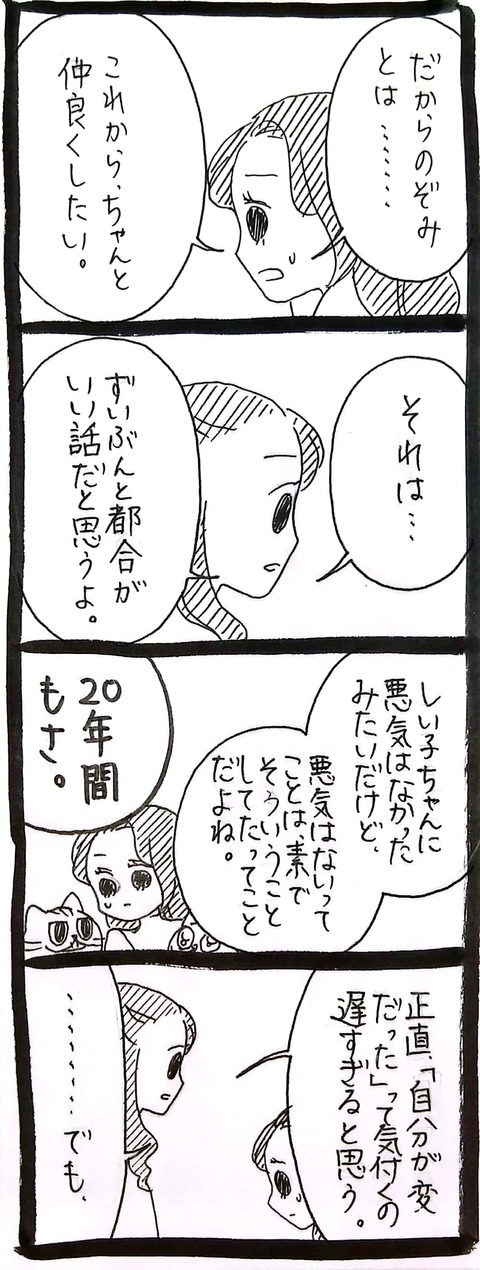 だからのぞみ
とは………
これから、ちゃんと
仲良くしたい。
それは…
ずいぶんと都合が
いい話だと思うよ。
しい子ちゃんに
悪気はなかった
みたいだけど、
悪気はないって
ことは、素で
そういうこと
してたってこと
だよね。
20年間
もさ。
正直、「自分が変
だった」って気付くの
遅すぎると思う。
………でも、